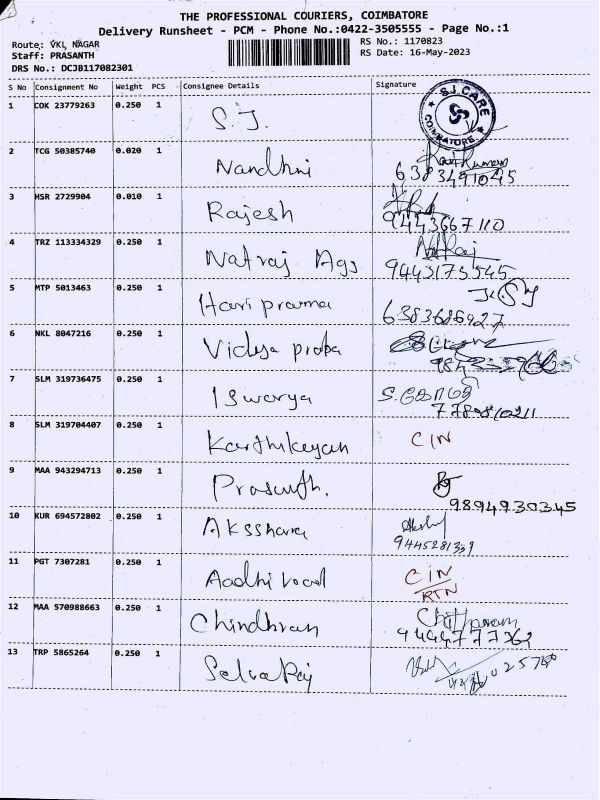 THE PROFESSIONAL COURIERS, COIMBATORE
Delivery Runsheet - PCM - Phone No.:0422-3505555 - Page No.:1
Route: VKL NAGAR
RS No.: 1170823
Staff: PRASANTH
RS Date: 16-May-2023
DRS No.: DCJB117082301
S No Consignment No Weight PCS Consignee Details Signature
1 COK 23779263 0.250 1 S.J. S.J. CARE COIMBATORE
2 TCG 50385740 0.020 1 Nandhni
6383491045
3 HSR 2729904 0.010 1 Rajesh
9443667110
4 TRZ 113334329 0.250 1 Natraj Ags
9443175545
5 MTP 5013463 0.250 1 Hari prarma
6383686927
6 NKL 8047216 0.250 1 Vidya praba
7 SLM 319736475 0.250 1 Iswarya
8 SLM 319704407 0.250 1 Karthikeyan CIN
9 MAA 943294713 0.250 1 Prasanth.
9894930345
10 KUR 694572802 0.250 1 Aksshara
11 PGT 7307281 0.250 1 CIN
RTN
12 MAA 570988663 0.250 1 Chindhran
9444777362
13 TRP 5865264 0.250 1 SelvaRaj